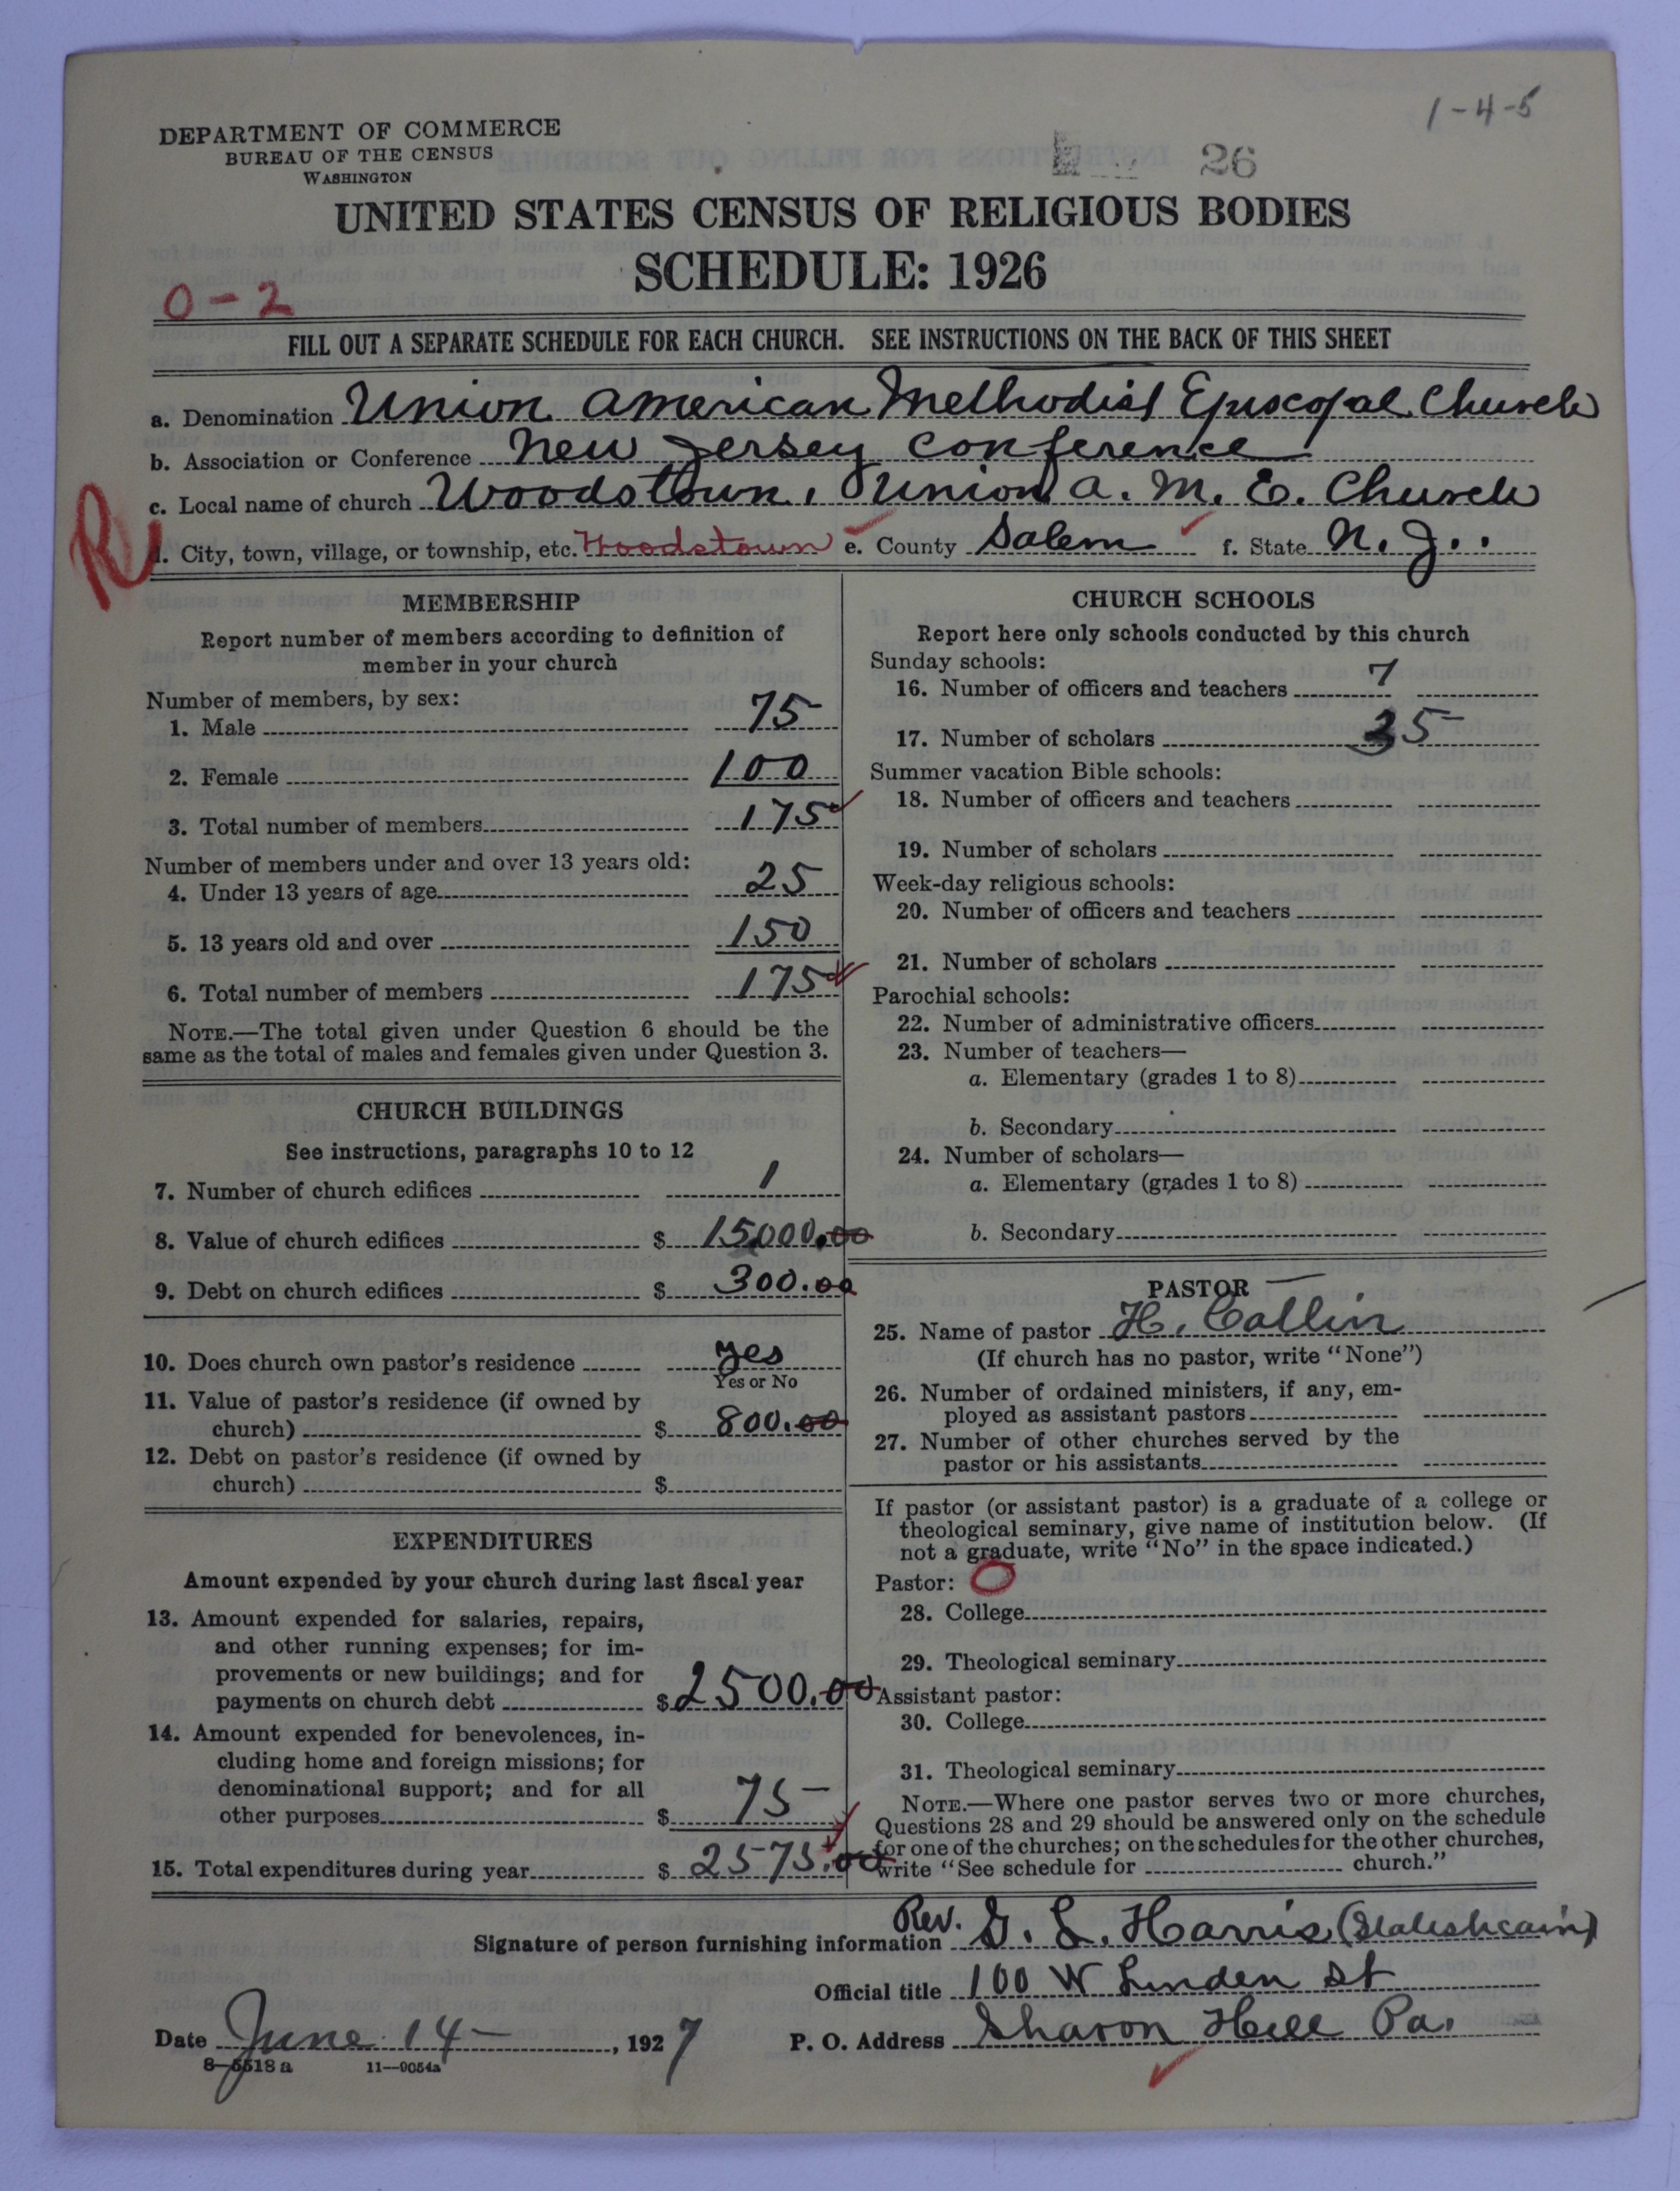 1-4-5
DEPARTMENT OF COMMERCE
BUREAU OF THE CENSUS
WASHINGTON
26
UNITED STATES CENSUS OF RELIGIOUS BODIES
SCHEDULE: 1926
0-2
FILL OUT A SEPARATE SCHEDULE FOR EACH CHURCH. SEE INSTRUCTIONS ON THE BACK OF THIS SHEET
a. Denomination Union American Methodist Episcopal Church
b. Association or Conference New Jersey Conference
c. Local name of church Woodstown, Union A. M. E. Church
R
d. City, town, village, or township, etc. Woodstown e. County Salem f. State N. J.
MEMBERSHIP
Report number of members according to definition of
member in your church
Number of members, by sex:
1. Male 75
2. Female 100
3. Total number of members 175
Number of members under and over 13 years old:
4. Under 13 years of age 25
5. 13 years old and over 150
6. Total number of members 175
NOTE.—The total given under Question 6 should be the
same as the total of males and females given under Question 3.
CHURCH BUILDINGS
See instructions, paragraphs 10 to 12
7. Number of church edifices 1
8. Value of church edifices $ 15000.00
9. Debt on church edifices $ 300.00
10. Does church own pastor's residence yes
Yes or No
11. Value of pastor's residence (if owned by
church) $ 800.00
12. Debt on pastor's residence (if owned by
church) $
EXPENDITURES
Amount expended by your church during last fiscal year
13. Amount expended for salaries, repairs,
and other running expenses; for im-
provements or new buildings; and for
payments on church debt $ 2500.00
14. Amount expended for benevolences, in-
cluding home and foreign missions; for
denominational support; and for all
other purposes $ 75-
15. Total expenditures during year $ 2575.00
CHURCH SCHOOLS
Report here only schools conducted by this church
Sunday schools:
16. Number of officers and teachers 7
17. Number of scholars 35
Summer vacation Bible schools:
18. Number of officers and teachers
19. Number of scholars
Week-day religious schools:
20. Number of officers and teachers
21. Number of scholars
Parochial schools:
22. Number of administrative officers
23. Number of teachers—
a. Elementary (grades 1 to 8)
b. Secondary
24. Number of scholars—
a. Elementary (grades 1 to 8)
b. Secondary
PASTOR
25. Name of pastor H. Collin
(If church has no pastor, write "None")
26. Number of ordained ministers, if any, em-
ployed as assistant pastors
27. Number of other churches served by the
pastor or his assistants
If pastor (or assistant pastor) is a graduate of a college or
theological seminary, give name of institution below. (If
not a graduate, write "No" in the space indicated.)
Pastor: O
28. College
29. Theological seminary
Assistant pastor:
30. College
31. Theological seminary
NOTE.—Where one pastor serves two or more churches,
Questions 28 and 29 should be answered only on the schedule
for one of the churches; on the schedules for the other churches,
write "See schedule for church."
Signature of person furnishing information Rev. G. L. Harris
Official title 100 W Linden St
Date June 14-, 1927 P. O. Address Sharon Hill Pa.
8-5518 a 11-9054a